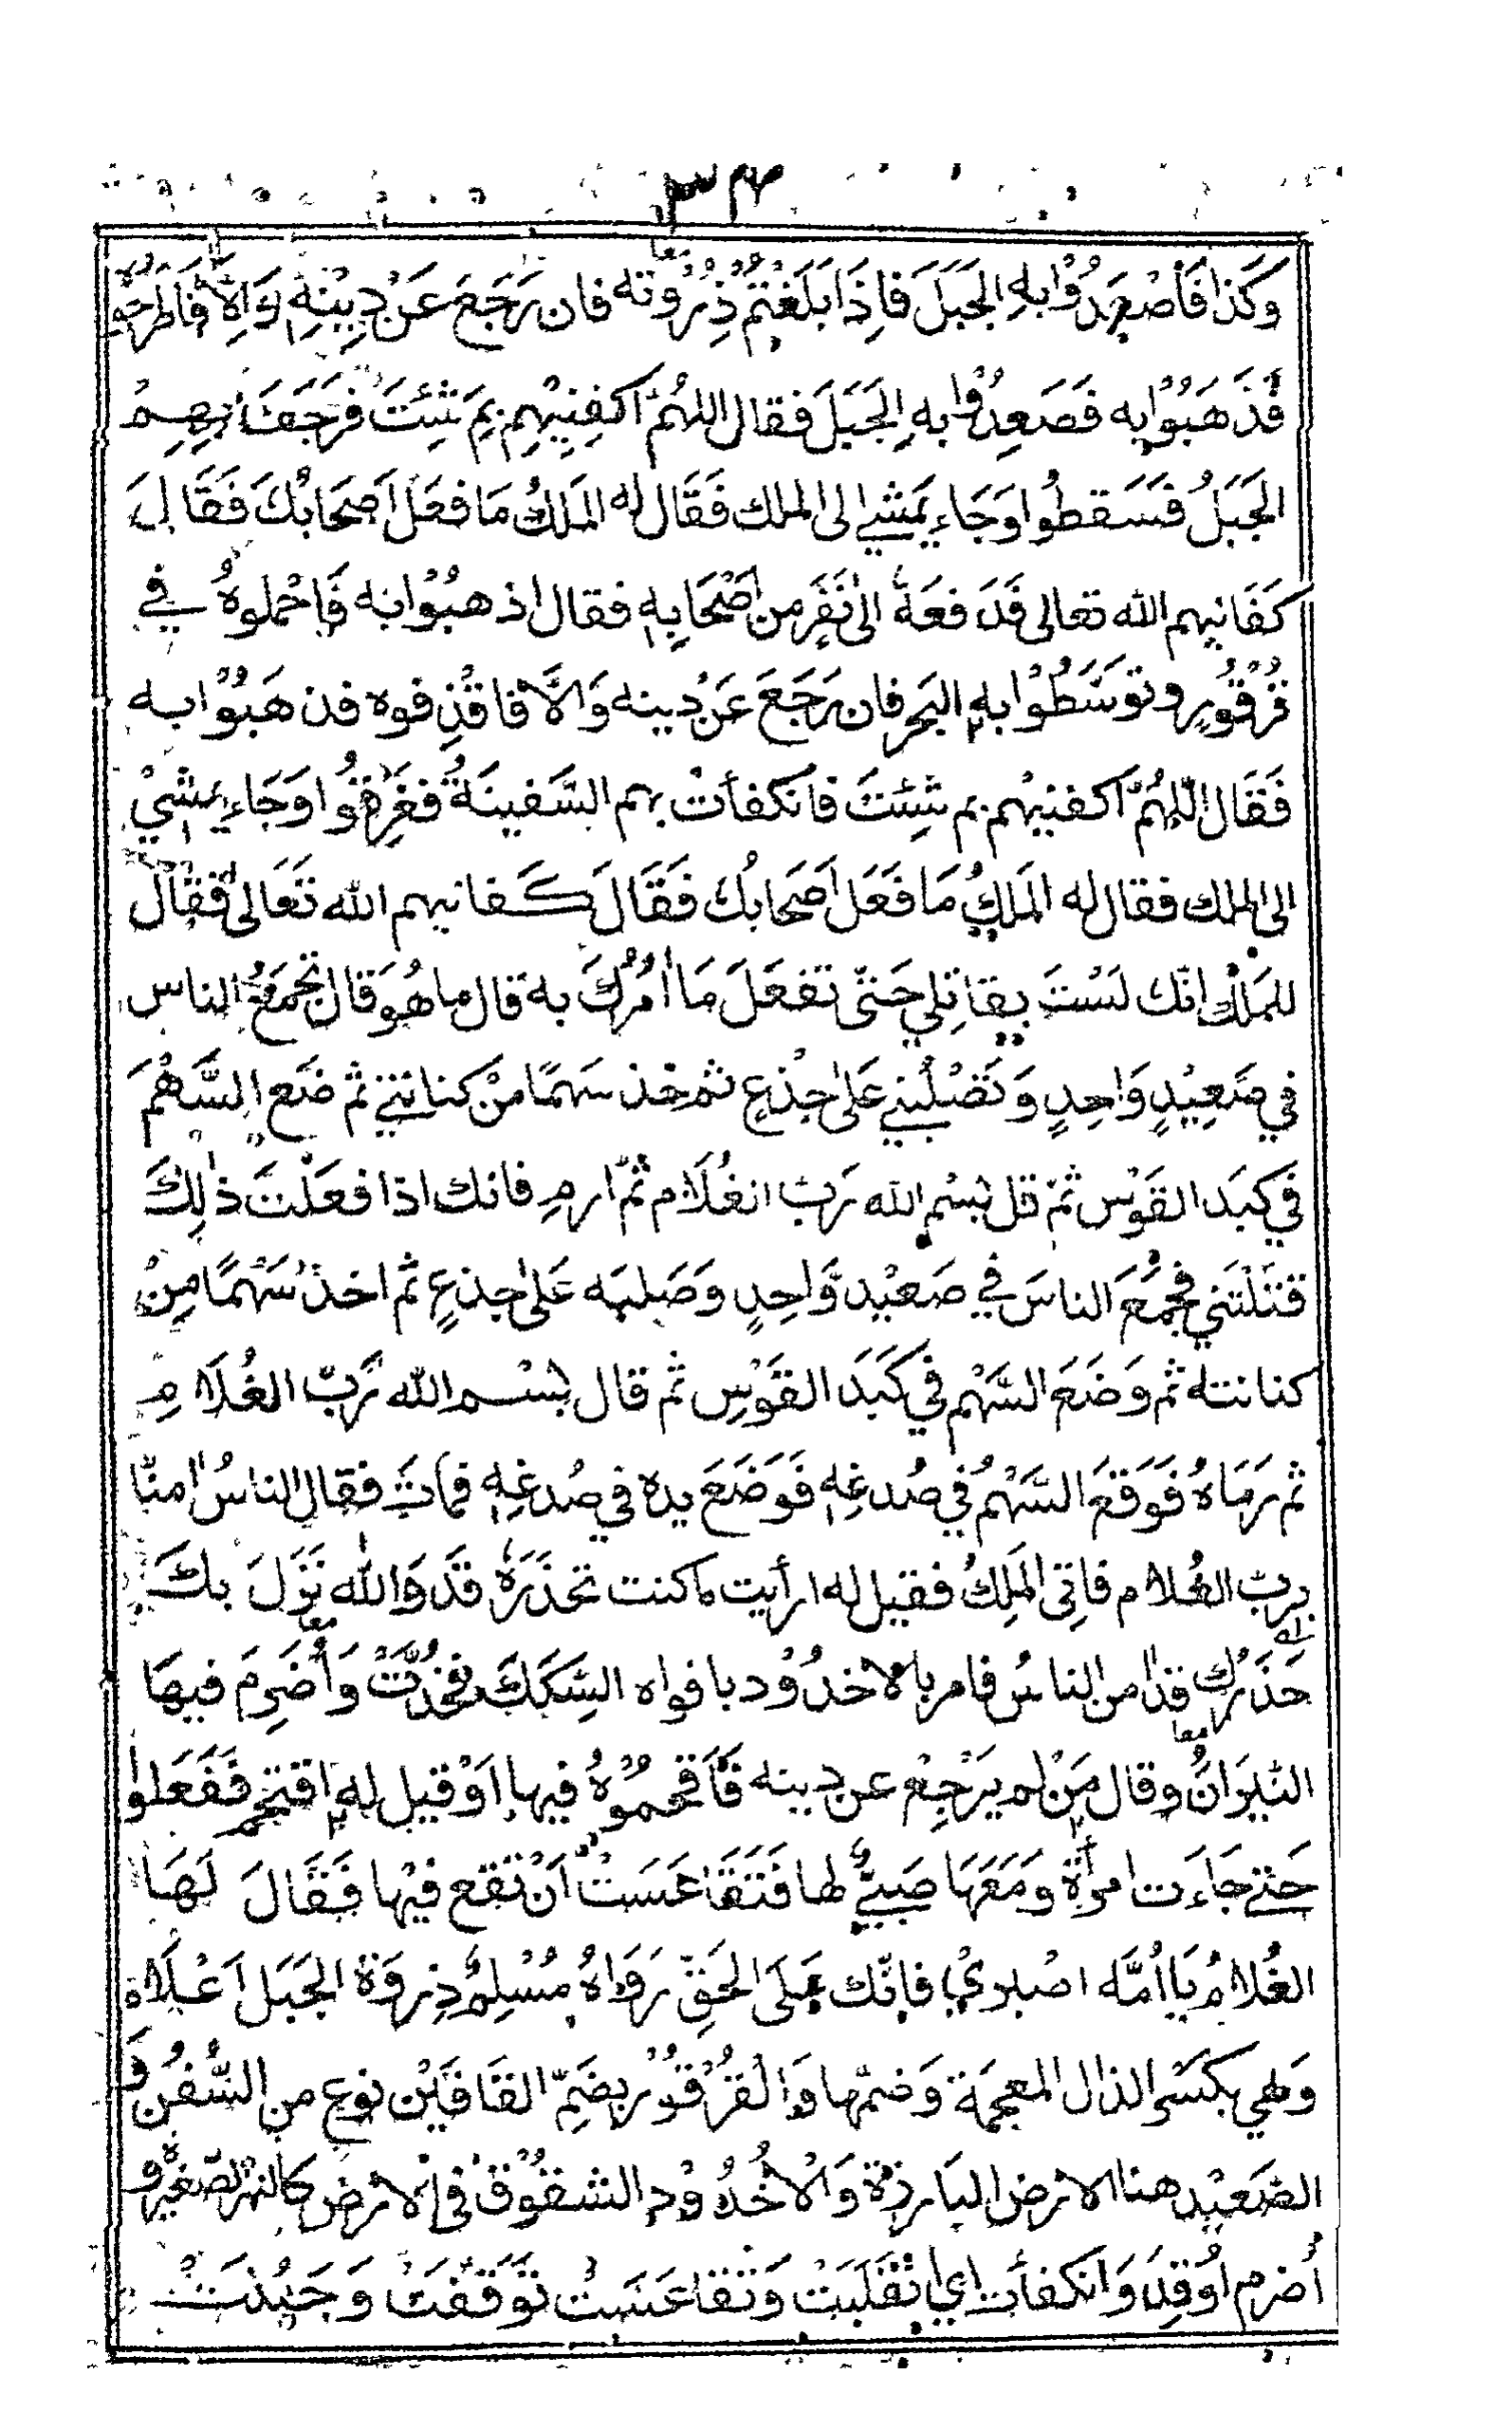 ٣٤
وَكَذا فَأَصْعِدُوْا بِهِ الجَبَلَ فَاِذَا بَلَغْتُمْ ذِرُوته فان رَجَعَ عَنْ دِيْنِهِ وَاِلاَّ فَاطرَحُوْهُ
فَذَهَبُوْا به فَصَعِدُوْا بهِ الجَبَلَ فقال اللهُمَّ اكفِنِيْهِم بِمَ شِئتَ فرَجَفَ بِهِمُ
الجَبَلُ فَسَقطُوا وَجَاء يَمشِي الى الملك فَقَال له المَلكُ مَا فعَلَ اَصحَابُكَ فَقَالَ
كَفَانِيهم الله تعالى فَدَفعَهُ الىٰ نَفَرٍ من اَصْحَابِهِ فقال اذهبُوْا به فَاحْملوهُ في
قُرْقُورٍ وتوسَّطُوْا بهِ البَحر فان رَجَعَ عَنْ دينه وَالاَّ فاقذِفوه فذهَبُوْا به
فَقَال اللّهُمَّ اكفنيْهم بم شِئتَ فانكفأتْ بهم السَّفينَةُ فغَرِقُوا وَجَاء يمشيْ
الى الملك فقال له المَلِكُ مَا فَعَلَ اَصحَابُكَ فَقَالَ كَفانيهم الله تَعَالىٰ فقال
للمَلك انّك لَسْتَ بِقاتِلِي حَتّى تفعَلَ مَا اٰمُرُكَ به قال ما هُوَ قال تجمَعُ الناس
في صَعِيْدٍ وَاحِدٍ وَتَصْلُبُني عَلىٰ جِذعٍ ثم خذ سَهمًا مِنْ كنانتي ثم ضَع السَّهْمَ
في كبَد القَوْس ثمّ قل بِسْمِ الله رَبِّ الغُلَام ثمّ ارمِ فانك اذا فعَلْتَ ذٰلِكَ
قتَلْتَني فجمَعَ الناسَ في صَعيْدٍ وَّاحِدٍ وَصَلبَه عَلىٰ جِذعٍ ثم اخذ سَهْمًا مِنْ
كنانته ثم وَضَعَ السَّهْم في كَبَدَ القَوْسِ ثم قال بِسْم الله رَبِّ الغُلَامِ
ثم رَمَاهُ فَوَقعَ السَّهْمُ في صُدغِهِ فَوَضَعَ يده في صُدغِهِ فماتَ فقال الناسُ اٰمنّا
بربّ الغُلام فاتِى المَلِكُ فقيل له ارأيت ما كنت تحذَرَهُ قَد وَالله نَزَلَ بكَ
حَذَرُك قد اٰمن الناسُ فامر بالاخدُوْد بافواه السِّكَكَ فخُدَّتْ وَأُضرِمَ فيهَا
النّيرَانُ وقال مَنْ لم يَرْجِعْ عن دينه فَأَقحمُوْهُ فيها اَوْ قيل له اقتحِم فَفَعَلوا
حَتّى جاءَت امرأة وَمَعَهَا صَبيٌّ لها فَتَقَاعَسَتْ اَنْ تَقع فيْها فَقَالَ لَهَا
الغُلامُ يَا اُمَّه اصْبري فانّك عَلَى الحَقّ رَوَاهُ مُسْلِمٌ ذِروَة الجَبَل اَعْلَاهُ
وَهي بكسْر الذال المعجمَة وَضمّها وَالْقرْقوُر بضَمِّ القَافَيْن نوع من السُّفُن وَ
الصَّعيْد هنا الارض البَارزة وَالاُخْدُوْد الشقُوْقُ فى الارض كالنهر الصّغيْر وَ
أُضرم اُوقِدَ وَانكفأت اي انقلَبَتْ وَتقاعَسَتْ تَوَقفَتْ وَجَبُنَتْ